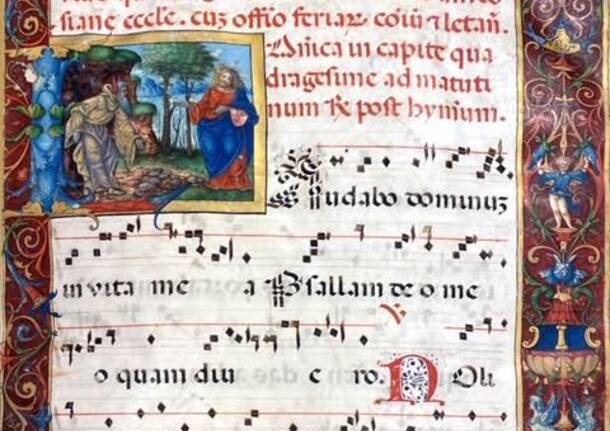 siane eccle. cuz offio feriar. coiui ⁊ letan.
Dnica in capite qua
dragesime ad matuti
num ℟ post hymnum.
Laudabo dominuz
in vita me a Psallam deo me
o quam diu e ro. ℣ Noli